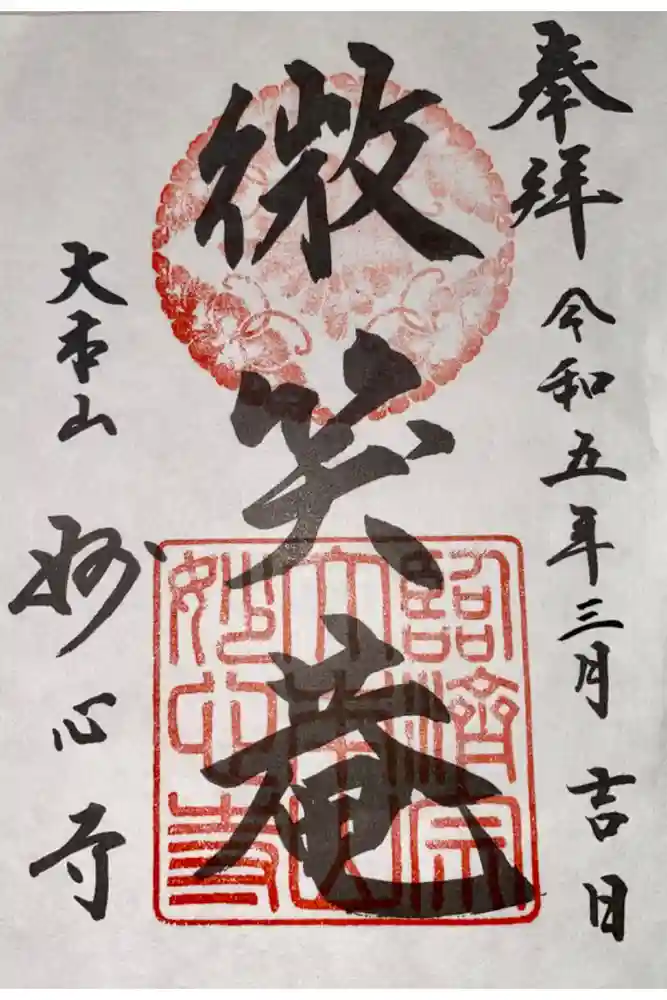 奉拝 令和五年三月 吉日
微笑庵
臨済宗
大本山
妙心寺
大本山 妙心寺